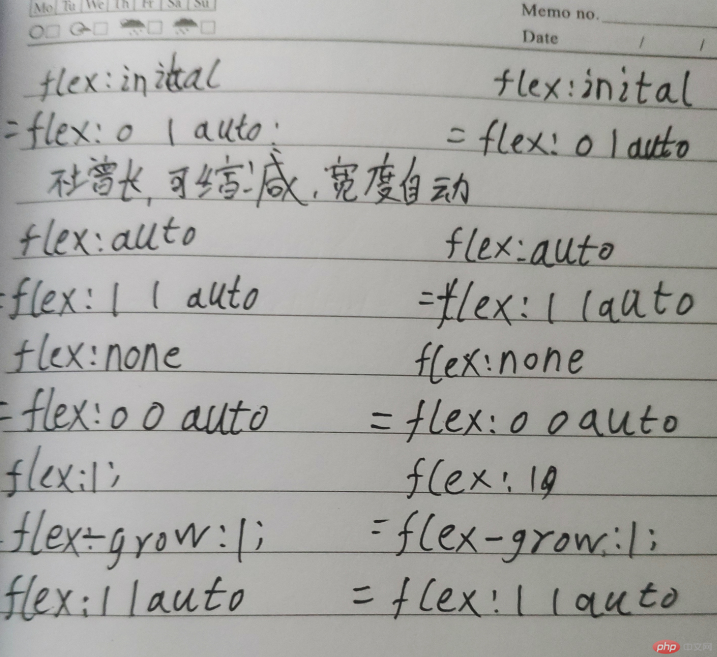 Mo Tu We Th Fr Sa Su
Memo no.
Date / /
flex:inital flex:inital
=flex: 0 1 auto; = flex: 0 1 auto
不增长,可缩减,宽度自动
flex:auto flex:auto
=flex: 1 1 auto =flex: 1 1 auto
flex:none flex:none
=flex:0 0 auto = flex: 0 0 auto
flex:1; flex:1
flex-grow:1; =flex-grow:1;
flex:1 1 auto = flex: 1 1 auto
php 中文网